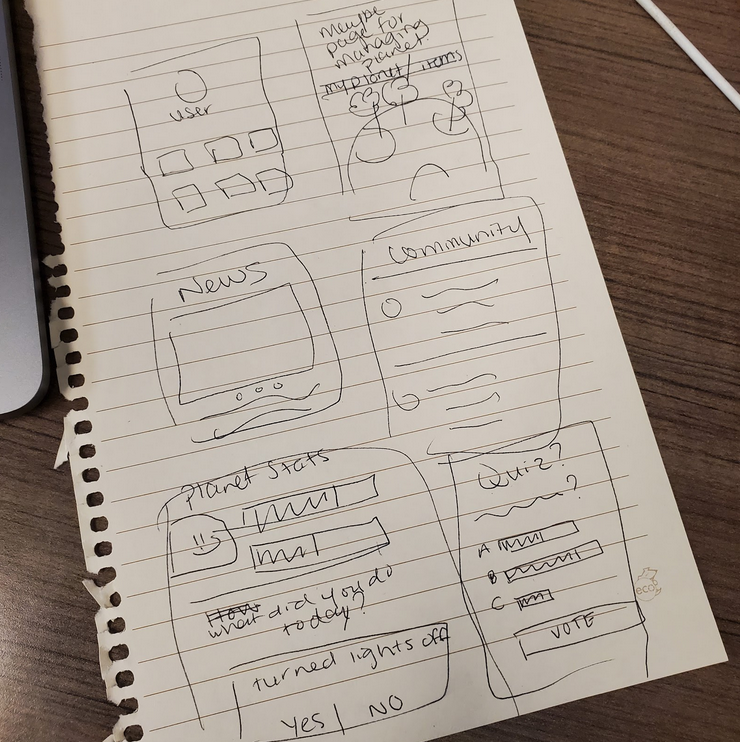 user
Maybe
page for
managing
planet
my planet/items
News
Community
Planet Stats
How
what did you do
today?
turned lights off
Yes | NO
Quiz?
?
A
B
C
VOTE
eco